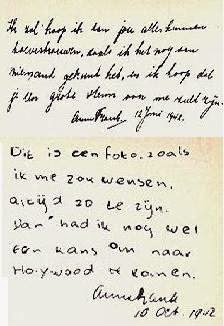 Ik zal hoop ik aan jou alles kunnen
toevertrouwen, zoals ik het nog aan
niemand gekund heb, en ik hoop dat
je een grote steun voor me zult zijn.
Anne Frank. 12 Juni 1942.
Dit is een foto, zoals
ik me zou wensen,
altijd zo te zijn.
Dan had ik nog wel
een kans om naar
Holywood te komen.
Anne Frank
10 Oct. 1942